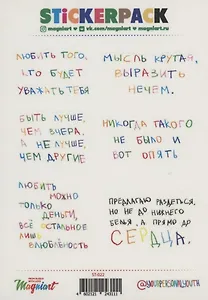 STICKERPACK
magniart magniart.ru
ЛЮБИТЬ ТОГО,
КТО БУДЕТ
УВАЖАТЬ ТЕБЯ
МЫСЛЬ КРУТАЯ,
ВЫРАЗИТЬ
НЕЧЕМ.
БЫТЬ ЛУЧШЕ,
ЧЕМ ВЧЕРА,
А НЕ ЛУЧШЕ,
ЧЕМ ДРУГИЕ
НИКОГДА ТАКОГО
НЕ БЫЛО И
ВОТ ОПЯТЬ
ЛЮБИТЬ
МОЖНО
ТОЛЬКО
ДЕНЬГИ,
ВСЁ ОСТАЛЬНОЕ
ЛИШЬ
ВЛЮБЛЁННОСТЬ
ПРЕДЛАГАЮ РАЗДЕТЬСЯ,
НО НЕ ДО НИЖНЕГО
БЕЛЬЯ, А ПРЯМО ДО
СЕРДЦА.
Magniart
ST-022
@YOURPERSONALYOUTH